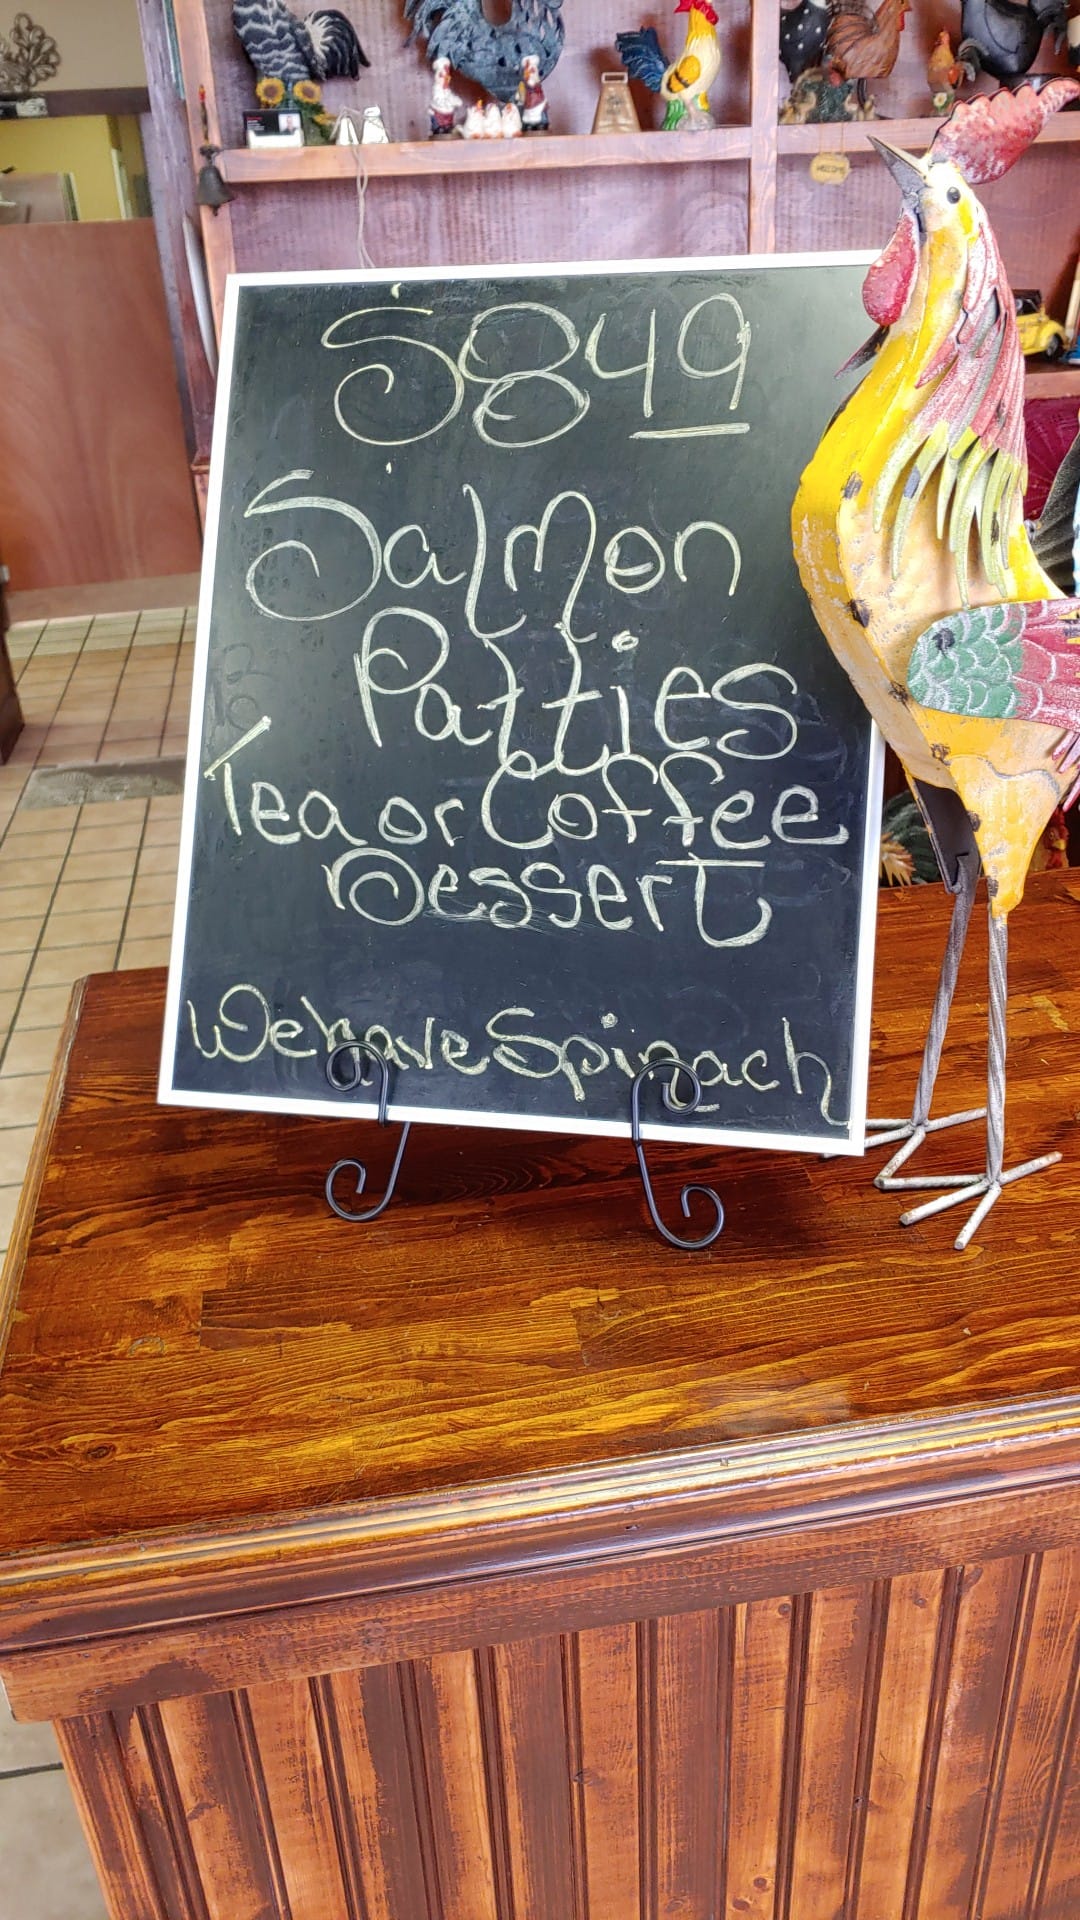 $849
Salmon
Patties
Tea or Coffee
Dessert
We have Spinach
WELCOME